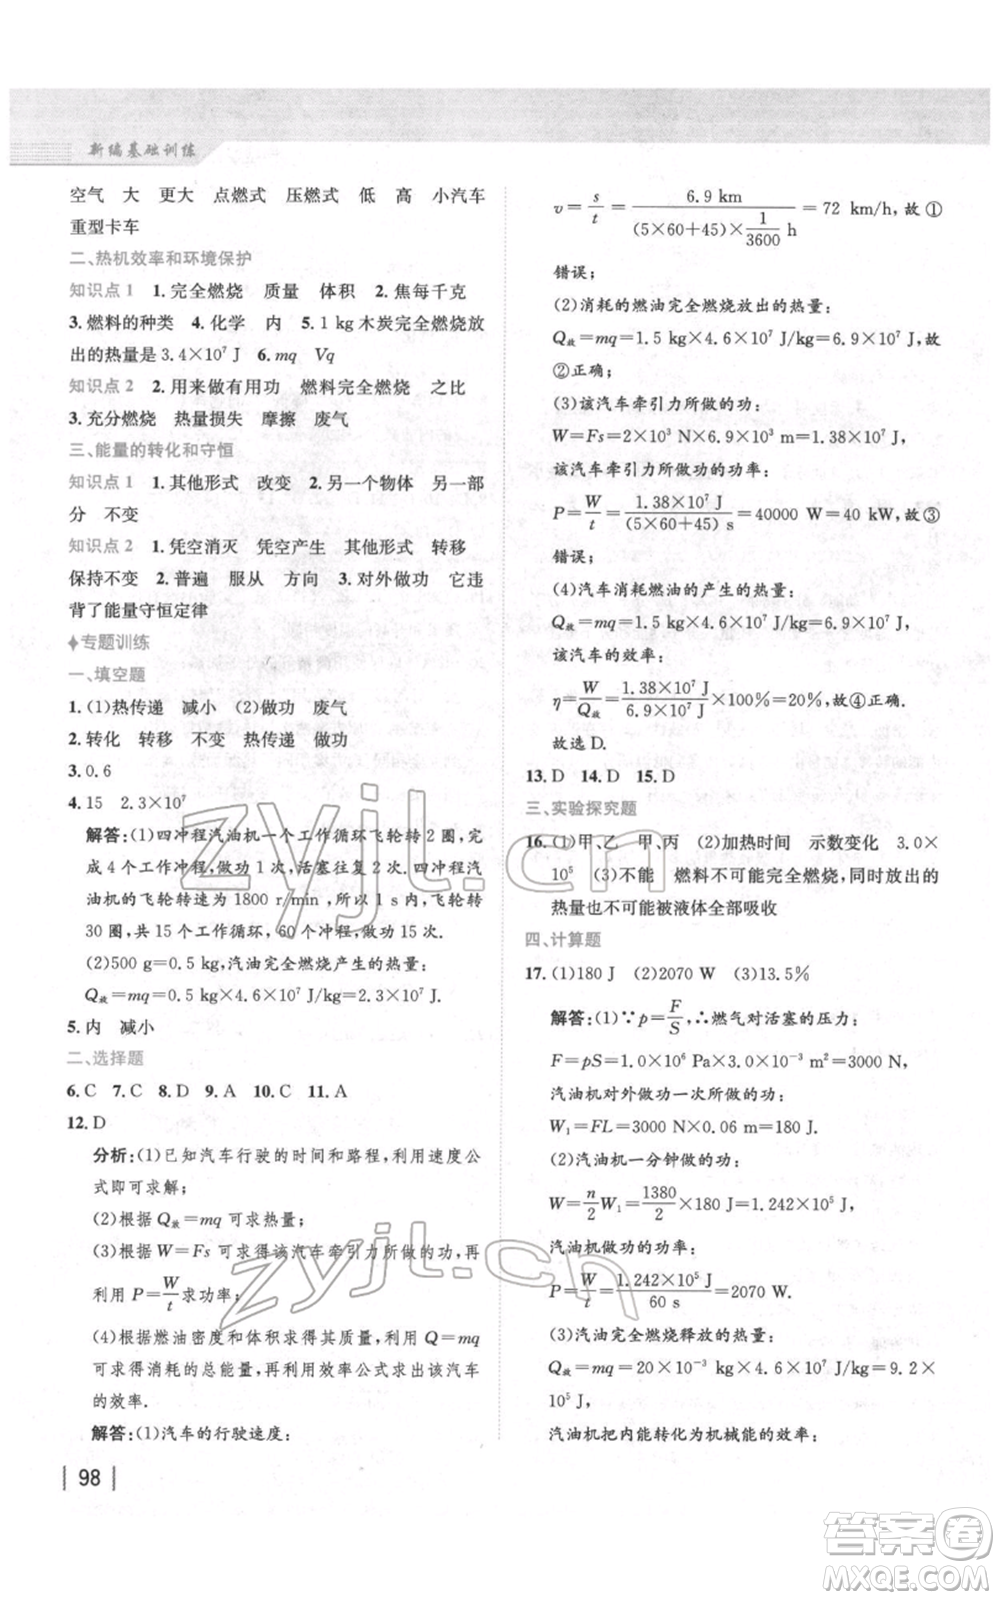 新编基础训练
空气 大 更大 点燃式 压燃式 低 高 小汽车
重型卡车
二、热机效率和环境保护
知识点1 1.完全燃烧 质量 体积 2.焦每千克
3.燃料的种类 4.化学 内 5.1 kg木炭完全燃烧放
出的热量是3.4×10⁷ J 6.mq Vq
知识点2 1.用来做有用功 燃料完全燃烧 之比
3.充分燃烧 热量损失 摩擦 废气
三、能量的转化和守恒
知识点1 1.其他形式 改变 2.另一个物体 另一部
分 不变
知识点2 1.凭空消灭 凭空产生 其他形式 转移
保持不变 2.普遍 服从 方向 3.对外做功 它违
背了能量守恒定律
专题训练
一、填空题
1.(1)热传递 减小 (2)做功 废气
2.转化 转移 不变 热传递 做功
3.0.6
4.15 2.3×10⁷
解答:(1)四冲程汽油机一个工作循环飞轮转2圈,完
成4个工作冲程,做功1次,活塞往复2次.四冲程汽
油机的飞轮转速为1800 r/min,所以1 s内,飞轮转
30圈,共15个工作循环,60个冲程,做功15次.
(2)500 g=0.5 kg,汽油完全燃烧产生的热量:
Q放=mq=0.5 kg×4.6×10⁷ J/kg=2.3×10⁷ J.
5.内 减小
二、选择题
6.C 7.C 8.D 9.A 10.C 11.A
12.D
分析:(1)已知汽车行驶的时间和路程,利用速度公
式即可求解;
(2)根据Q放=mq可求得热量;
(3)根据W=Fs可求得该汽车牵引力所做的功,再
利用P=W/t求功率;
(4)根据燃油密度和体积求得其质量,利用Q=mq
可求得消耗的总能量,再利用效率公式求出该汽车
的效率.
解答:(1)汽车的行驶速度:
98
v=s/t=6.9 km/((5×60+45)×1/3600 h)=72 km/h,故①
错误;
(2)消耗的燃油完全燃烧放出的热量:
Q放=mq=1.5 kg×4.6×10⁷ J/kg=6.9×10⁷ J,故
②正确;
(3)该汽车牵引力所做的功:
W=Fs=2×10³ N×6.9×10³ m=1.38×10⁷ J,
该汽车牵引力所做功的功率:
P=W/t=1.38×10⁷ J/(5×60+45) s=40000 W=40 kW,故③
错误;
(4)汽车消耗燃油的产生的热量:
Q放=mq=1.5 kg×4.6×10⁷ J/kg=6.9×10⁷ J,
该汽车的效率:
η=W/Q放=1.38×10⁷ J/6.9×10⁷ J×100%=20%,故④正确.
故选D.
13.D 14.D 15.D
三、实验探究题
16.(1)甲、乙 甲、丙 (2)加热时间 示数变化 3.0×
10⁵ (3)不能 燃料不可能完全燃烧,释放出的
热量也不可能被液体全部吸收
四、计算题
17.(1)180 J (2)2070 W (3)13.5%
解答:(1)∵p=F/S,∴燃气对活塞的压力:
F=pS=1.0×10⁶ Pa×3×10⁻³ m²=3000 N,
汽油机对外做功一次所做的功:
W₁=FL=3000 N×0.06 m=180 J.
(2)汽油机一分钟做的功:
W=n/2W₁=1380/2×180 J=1.242×10⁵ J,
汽油机做功的功率:
P=W/t=1.242×10⁵ J/60 s=2070 W.
(3)汽油完全燃烧释放的热量:
Q放=mq=20×10⁻³ kg×4.6×10⁷ J/kg=9.2×
10⁵ J,
汽油机把内能转化为机械能的效率:
zyjl.cn
zyjl.cn
答案卷
MXQE.COM